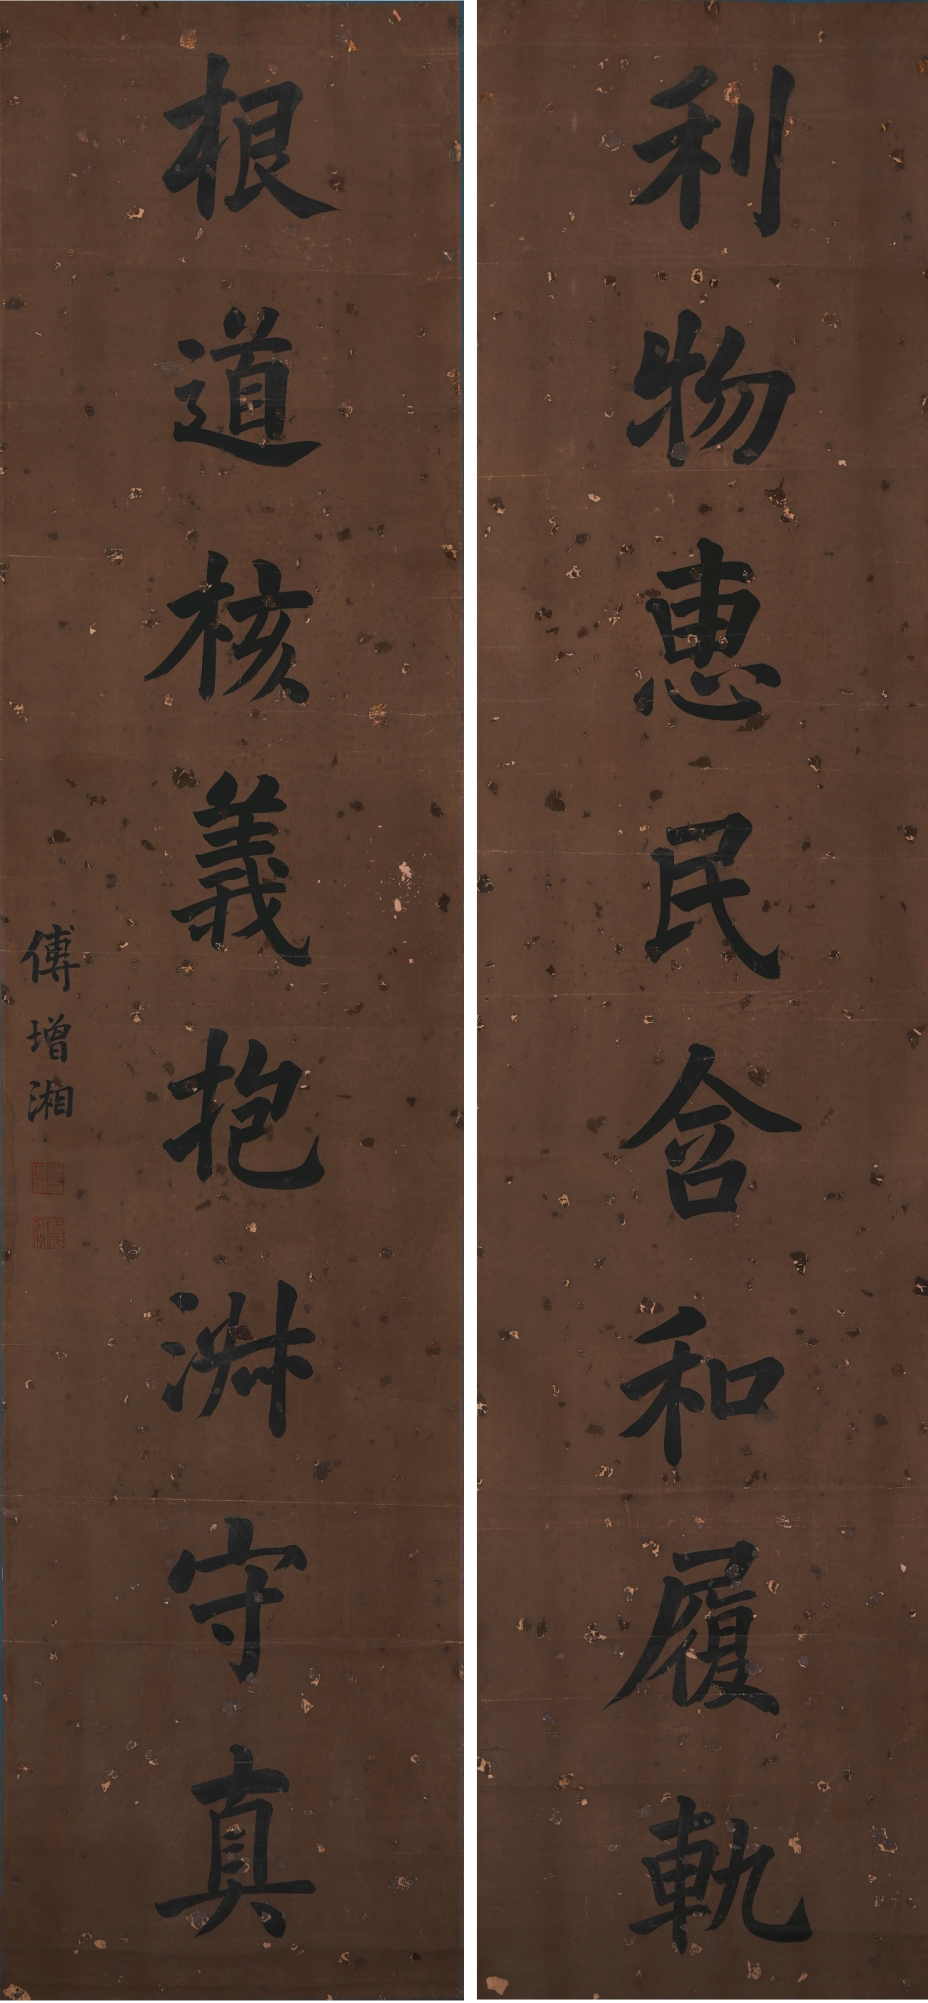 利物惠民含和履軌
根道核義抱淵守真
傅增湘